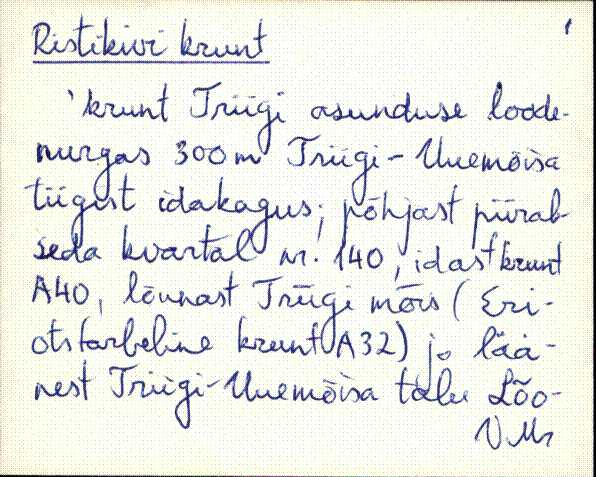 Ristikivi krunt
'krunt Triigi asunduse loode-
nurgas 300m Triigi-Uuemõisa
tiigist idakagus; põhjast piirab
seda kvartal nr. 140, idast krunt
A40, lõunast Triigi mõis (Eri-
otstarbeline krunt A32) ja lää-
nest Triigi-Uuemõisa talu Lõo-
VMr